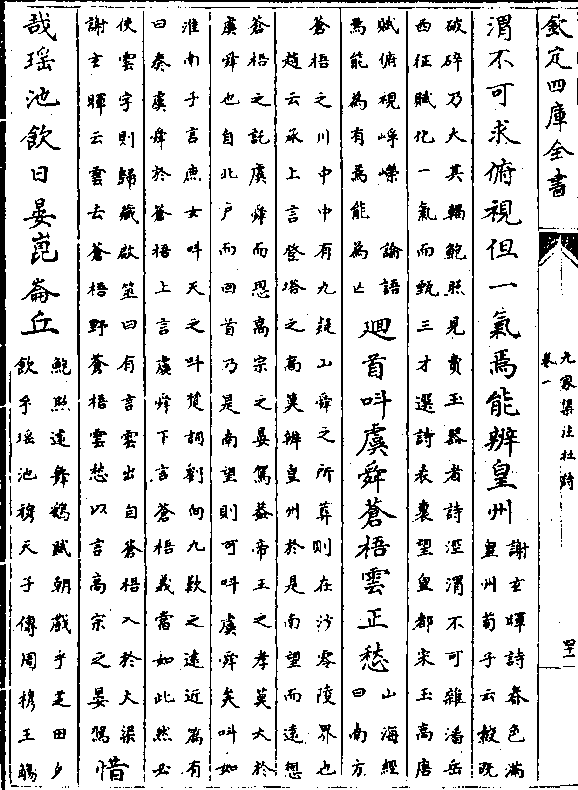 欽定四庫全書
九家集注杜詩
卷一
渭不可求俯視但一氣焉能辨皇州
謝玄暉詩春色滿
皇州荀子云殽既
破碎乃大其觴鮑照見賣玉器者詩涇渭不可雜潘岳
西征賦化一氣而甄三才選詩表裏望皇都宋玉高唐
賦俯視崢嶸 論語
焉能為有焉能為亡
迴首叫虞舜蒼梧雲正愁
山海經
曰南方
蒼梧之川中中有九疑山舜之所葬則在沙零陵界也
趙云承上言登塔之高莫辨皇州於是南望而遠想
蒼梧之託虞舜而思高宗之晏駕蓋帝王之孝莫大於
虞舜也自北户而回首乃是南望則可叫虞舜矣叫如
淮南子言庶女叫天之叫詞劉向九歎之遠近篇有
曰奏虞舜於蒼梧上言虞舜下言蒼梧義當如此然必
使雲字則歸藏啟筮曰有言雲出自蒼梧入於大梁
謝玄暉云雲去蒼梧野蒼梧雲愁以言高宗之晏駕
惜
哉瑶池飲日晏崑崙丘
鮑照遠舞鶴賦朝戲乎芝田夕
飲乎瑶池穆天子傳周穆王觴